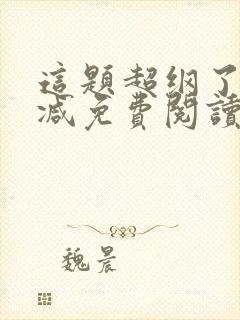 這題超綱了
減免費閱讀
魏晨